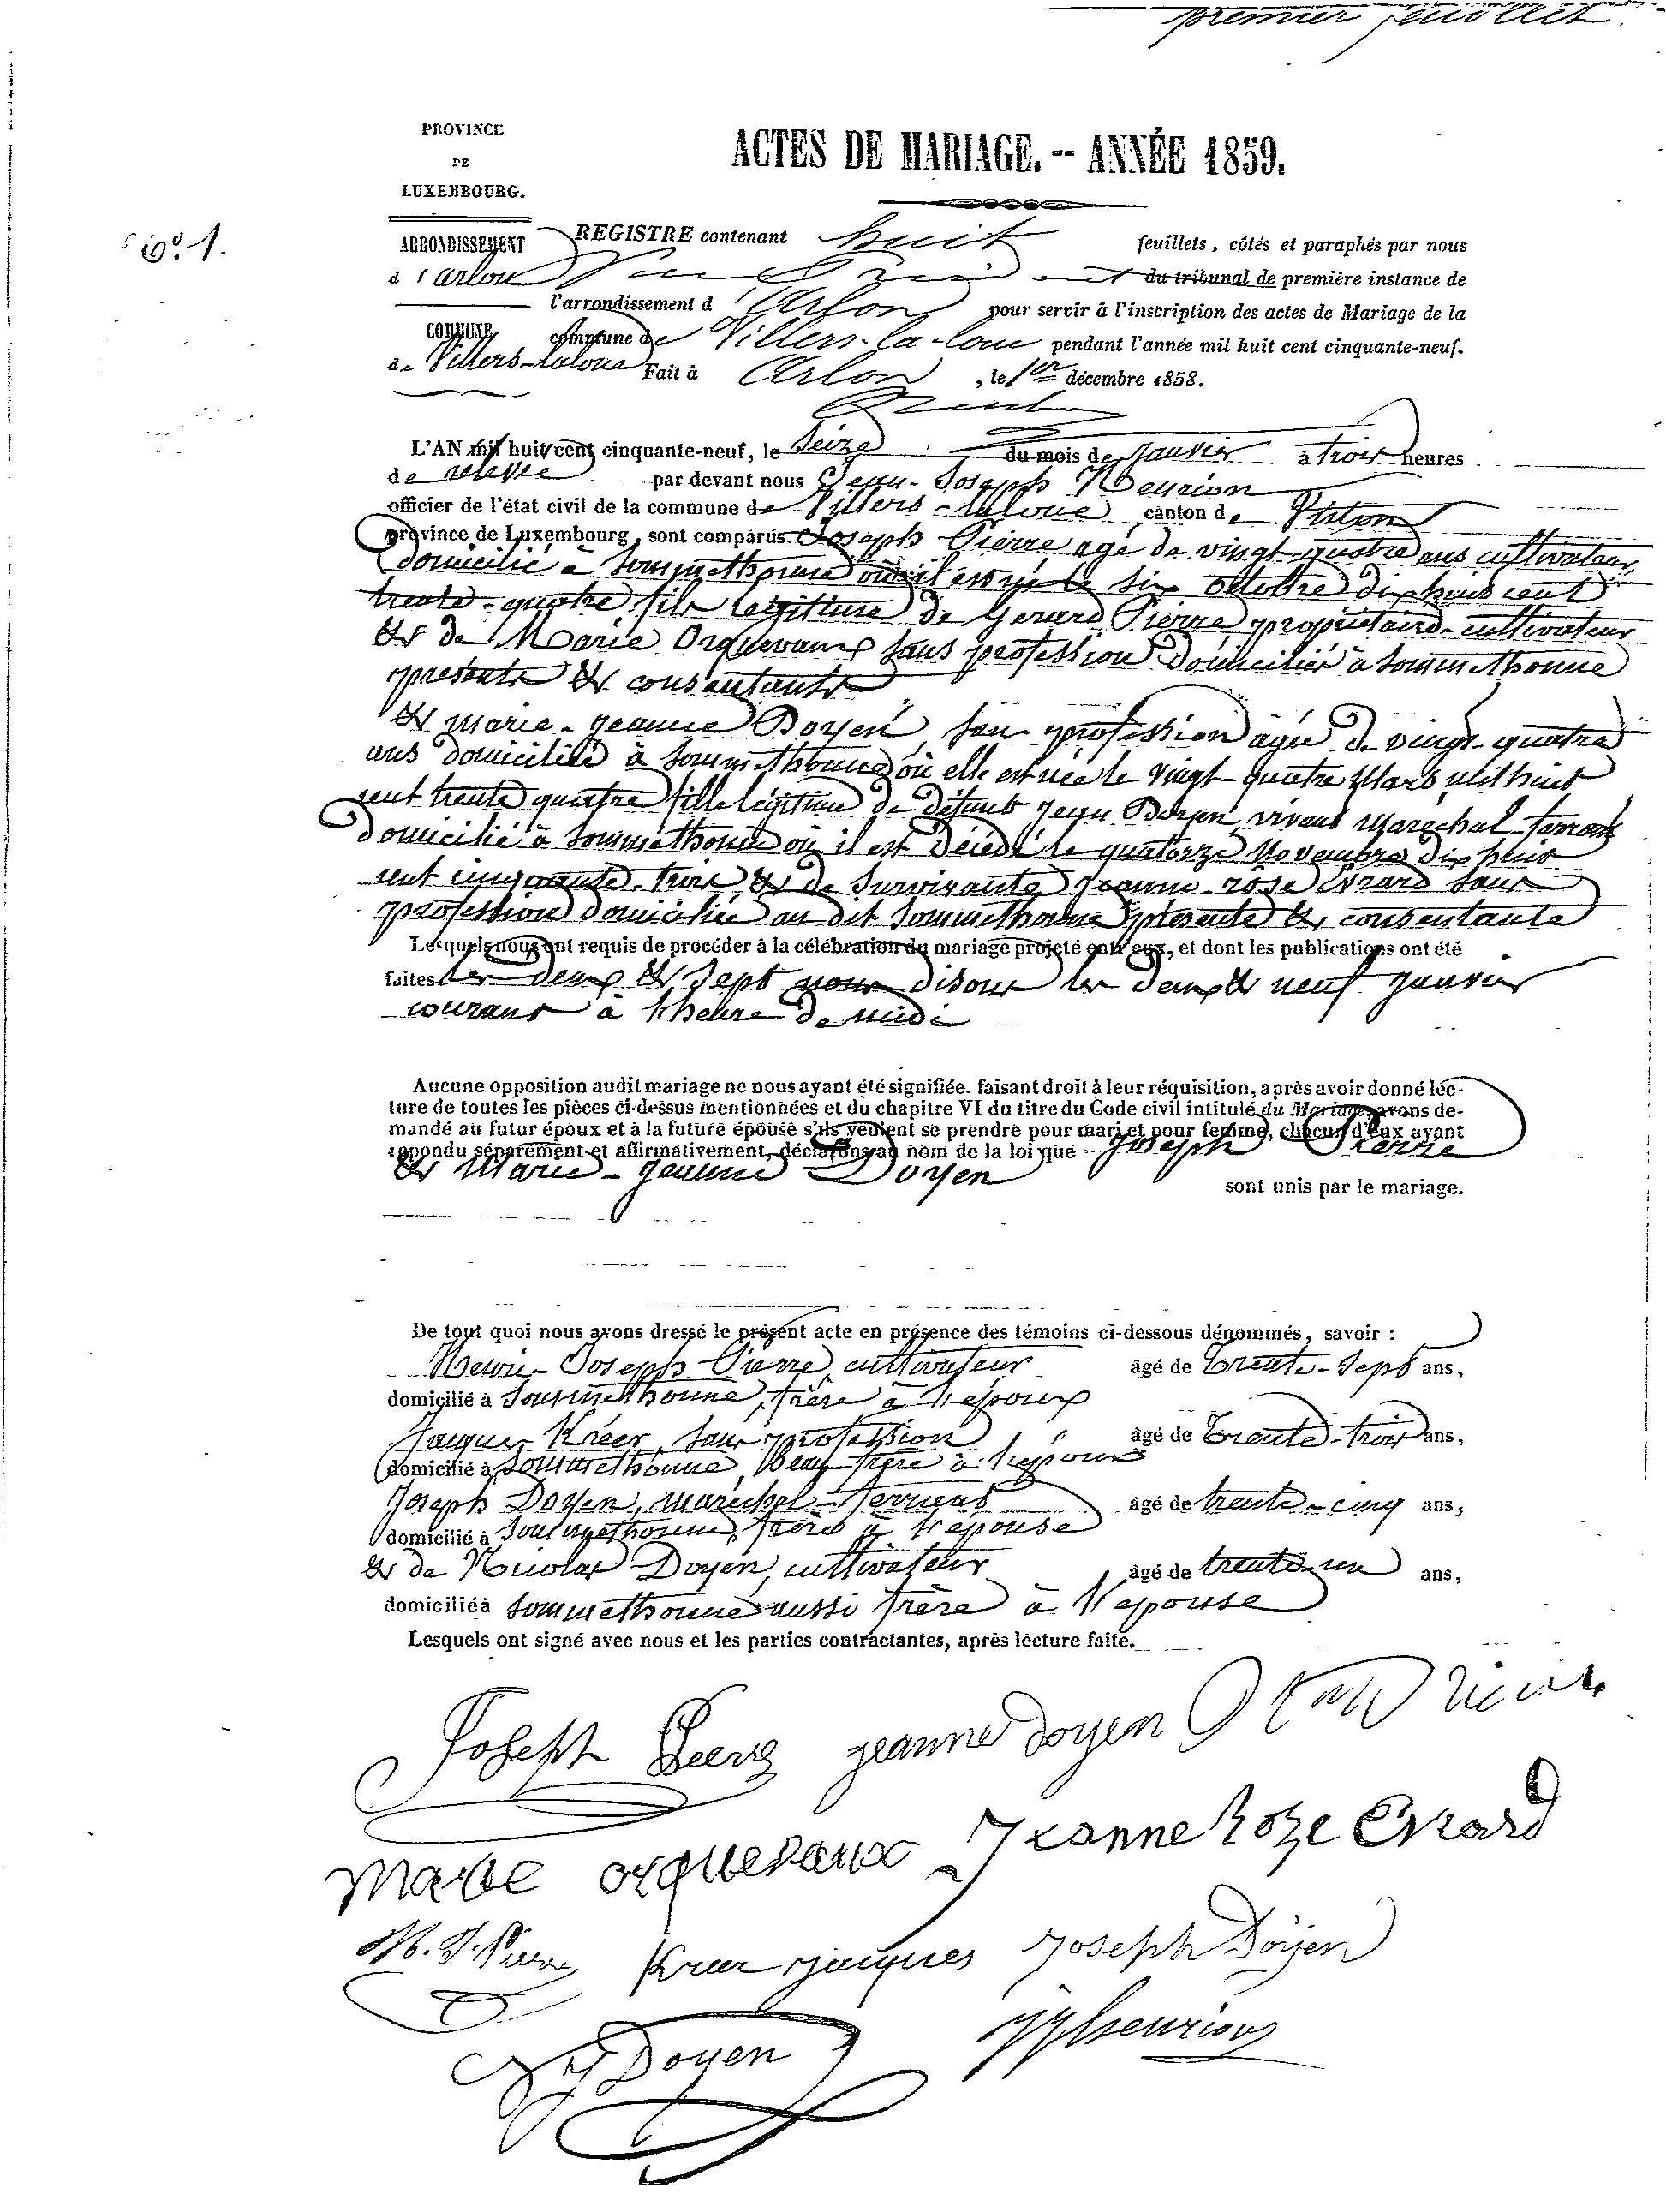 premier feuillet
PROVINCE
DE
LUXEMBOURG.
ACTES DE MARIAGE. -- ANNÉE 1859.
N° 1.
ARRONDISSEMENT
d'Arlon
COMMUNE
de Villers-laloue
REGISTRE contenant huit feuillets, côtés et paraphés par nous
du tribunal de première instance de
l'arrondissement d'Arlon pour servir à l'inscription des actes de Mariage de la
commune de Villers-la-loue pendant l'année mil huit cent cinquante-neuf.
Fait à Arlon, le 1er décembre 1858.
L'AN mil huit cent cinquante-neuf, le Seize du mois de Janvier à trois heures
de relevée par devant nous Jean-Joseph Henrion
officier de l'état civil de la commune de Villers-laloue canton de Virton
province de Luxembourg, sont comparus Joseph Pierre agé de vingt-quatre ans cultivateur,
domicilié à Sommethonne où il est né le six Octobre dix huit cent
trente-quatre fils légitime de Gerard Pierre propriétaire-cultivateur
& de Marie Orquevaux sans profession domiciliés à Sommethonne
présents & consentants
& marie-jeanne Doyen san profession agée de vingt-quatre
ans domiciliée à Sommethonne où elle est née le vingt-quatre Mars mil huit
cent trente quatre fille légitime de défunt jean Doyen vivant maréchal-ferrant
domicilié à Sommethonne où il est décédé le quatorze Novembre dix huit
cent cinquante-trois & de survivante jeanne-rose Evrard sans
profession domiciliée au dit Sommethonne présente & consentante
Lesquels nous ont requis de procéder à la célébration du mariage projeté entr'eux, et dont les publications ont été
faites les deux & sept nous disons les deux & neuf janvier
courant à l'heure de midi
Aucune opposition audit mariage ne nous ayant été signifiée. faisant droit à leur réquisition, après avoir donné lec-
ture de toutes les pièces ci-dessus mentionnées et du chapitre VI du titre du Code civil intitulé du Mariage, avons de-
mandé au futur époux et à la future épouse s'ils veulent se prendre pour mari et pour femme, chacun d'eux ayant
répondu séparément et affirmativement, déclarons au nom de la loi que Joseph Pierre
& Marie-jeanne Doyen
sont unis par le mariage.
De tout quoi nous avons dressé le présent acte en présence des témoins ci-dessous dénommés, savoir :
Henri-Joseph Pierre, cultivateur âgé de Trente-Sept ans,
domicilié à Sommethonne, frère à l'époux
Jacques Kréer, sans profession âgé de Trente-trois ans,
domicilié à Sommethonne, beau frère à l'époux
Joseph Doyen, maréchal-ferrant âgé de trente-cinq ans,
domicilié à Sommethonne, frère à l'épouse
& de Nicolas Doyen, cultivateur âgé de trente-un ans,
domicilié à Sommethonne aussi frère à l'épouse
Lesquels ont signé avec nous et les parties contractantes, après lecture faite.
Joseph Pierre jeanne doyen
marie orquevaux Jeanne Roze Evrard
H. J. Pierre Kreer jacques Joseph Doyen
Doyen JJhenrion